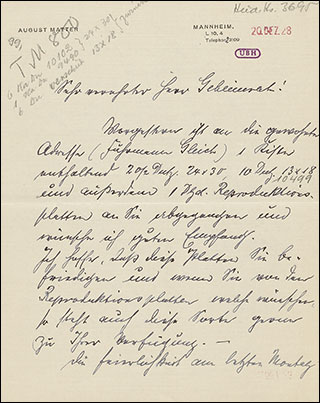 Heid. Hs. 3695
AUGUST MATTER
MANNHEIM,
L 10, 4
20. DEZ. 28
UBH
Sehr verehrter Herr Geheimrat!
Vorgestern ist an die gewohnte
Adresse (Fuhrmann Gleich) 1 Kiste
enthaltend 20/2 Dutz. 24x30, 10 Dutz. 13x18
und außerdem 1 Dtzd. Reproduktions-
platten an Sie abgegangen und
wünsche ich guten Empfang.
Ich hoffe, daß diese Platten Sie be-
friedigen und wenn Sie von den
Reproduktionsplatten welche wünschen,
so steht auch diese Sorte gerne
zu Ihrer Verfügung. —
Die Feierlichkeit am letzten Montag